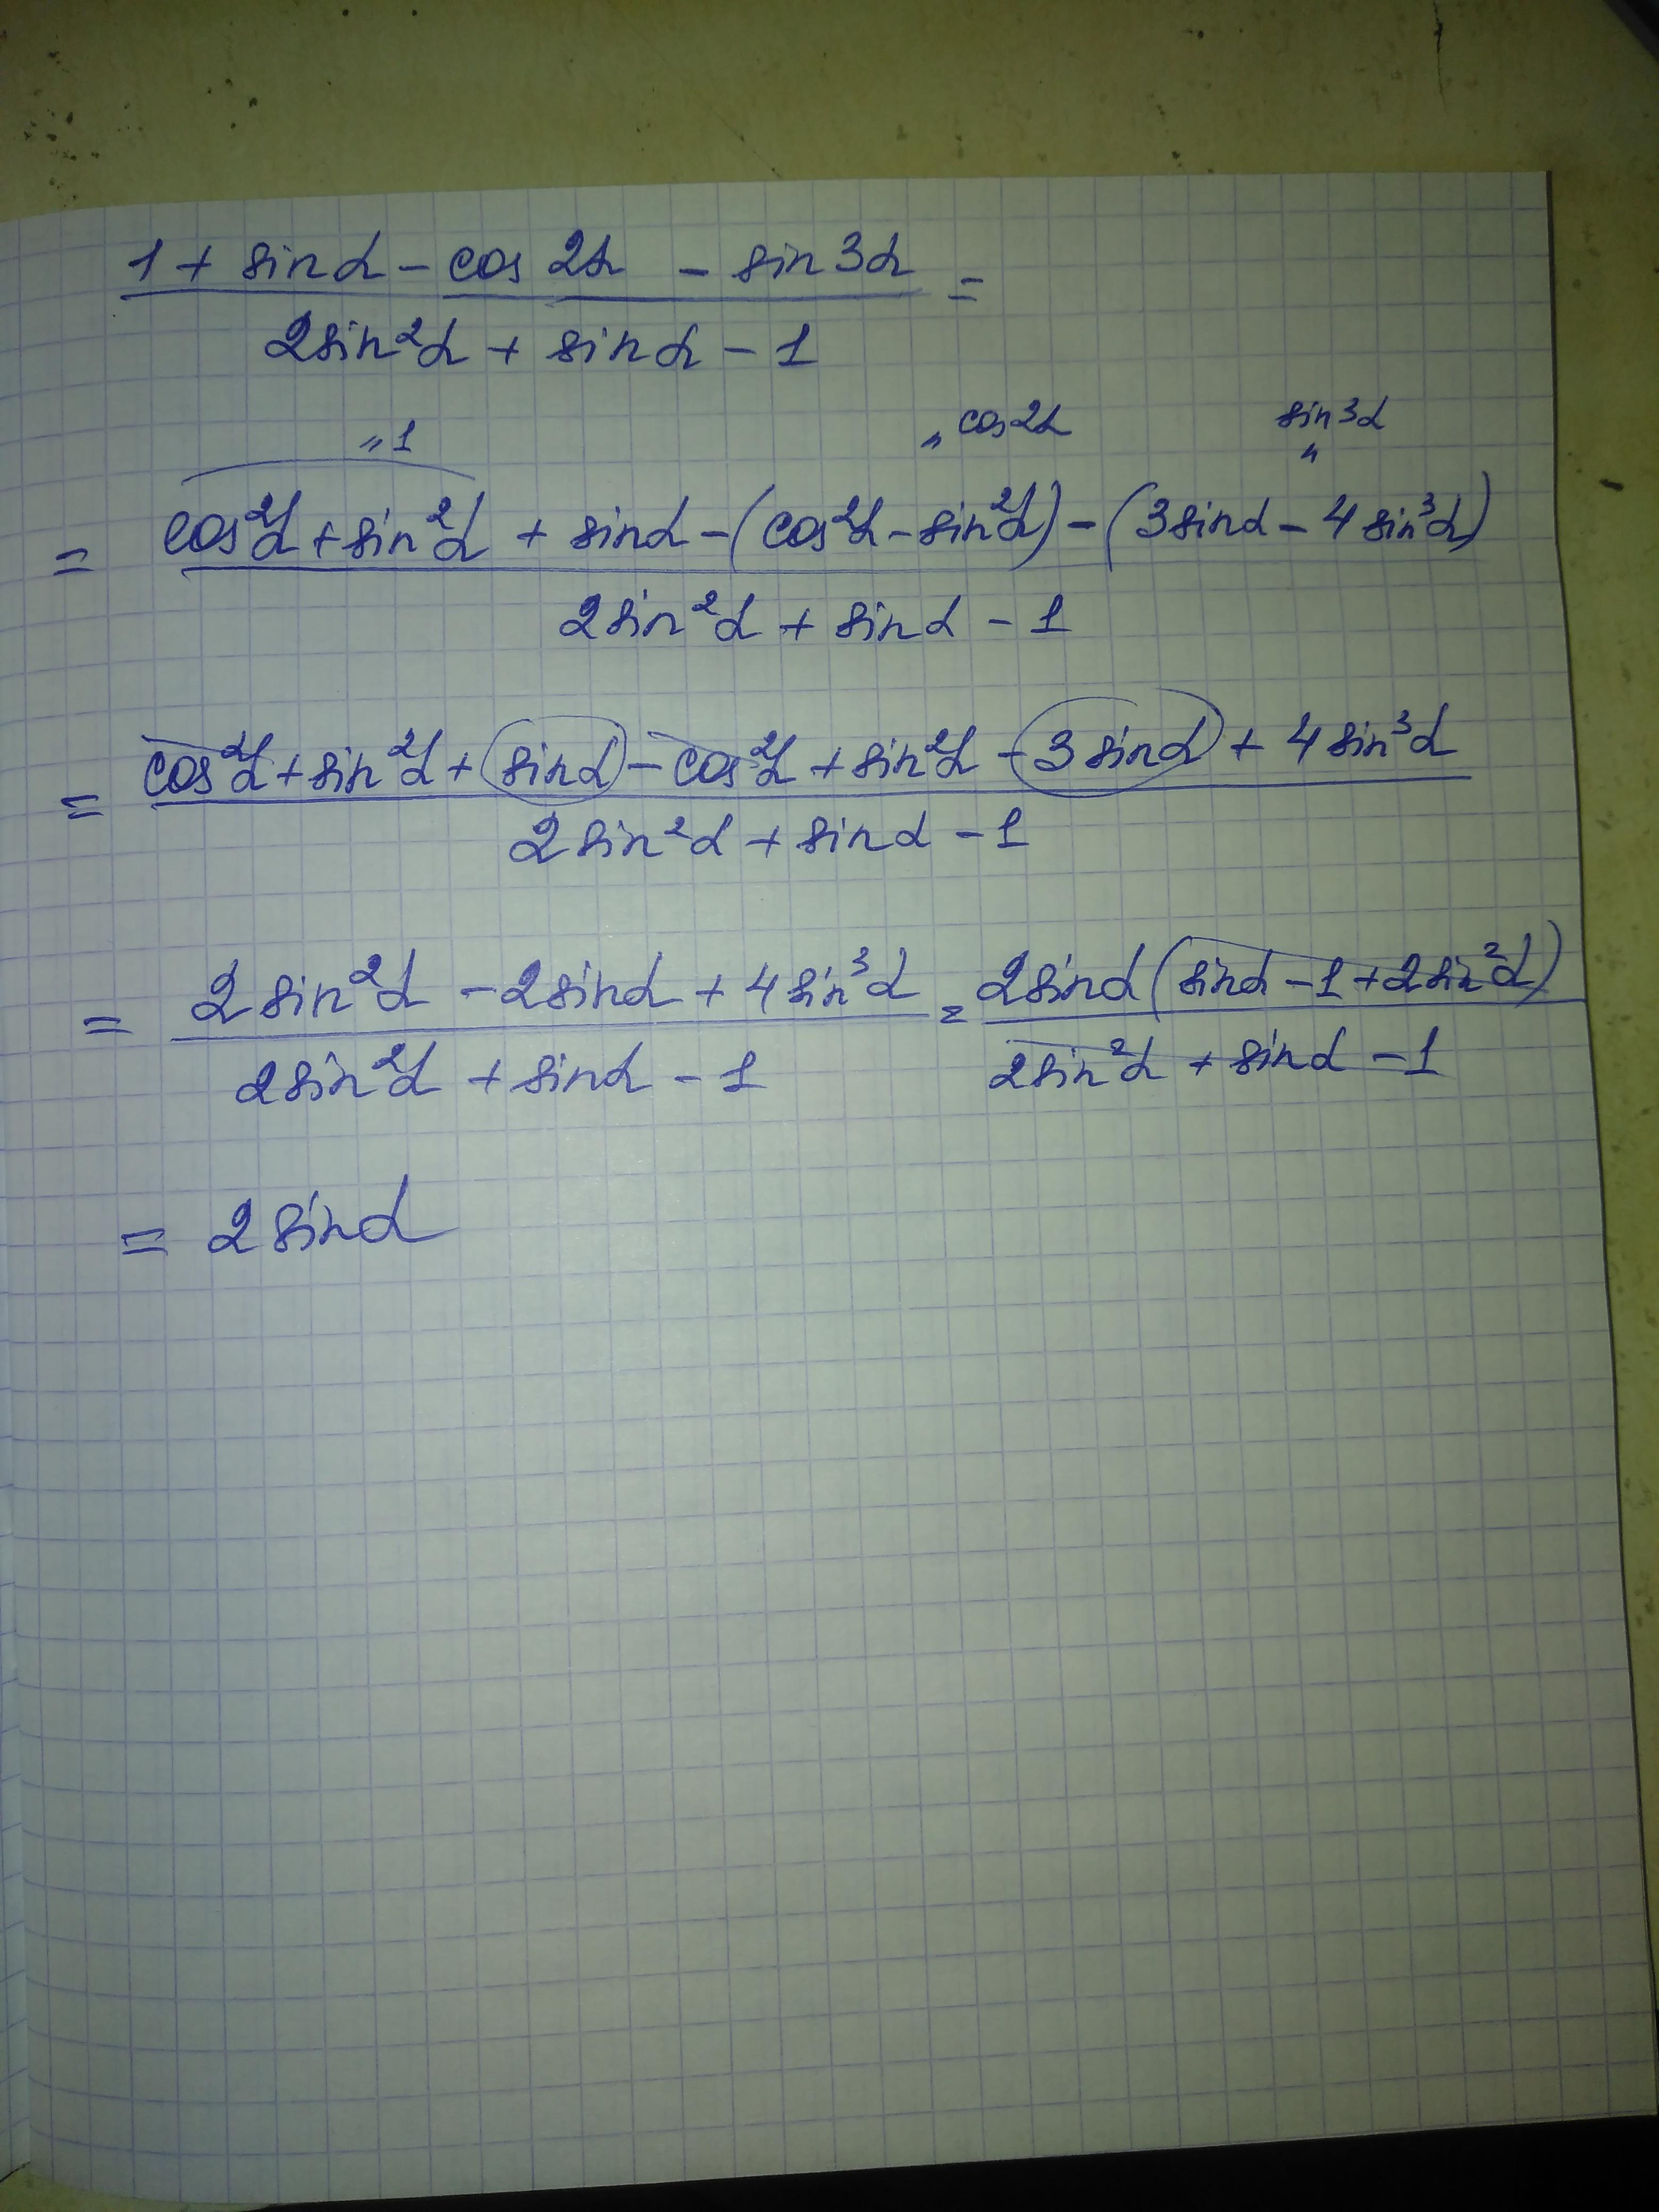 1 + sinα - cos 2α - sin 3α =
2sin²α + sinα - 1
"1 "cos2α sin3α "
= cos²α + sin²α + sinα - (cos²α - sin²α) - (3sinα - 4sin³α)
2sin²α + sinα - 1
= cos²α + sin²α + sinα - cos²α + sin²α - 3sinα + 4sin³α
2sin²α + sinα - 1
= 2sin²α - 2sinα + 4sin³α = 2sinα(sinα - 1 + 2sin²α)
2sin²α + sinα - 1 2sin²α + sinα - 1
= 2sinα